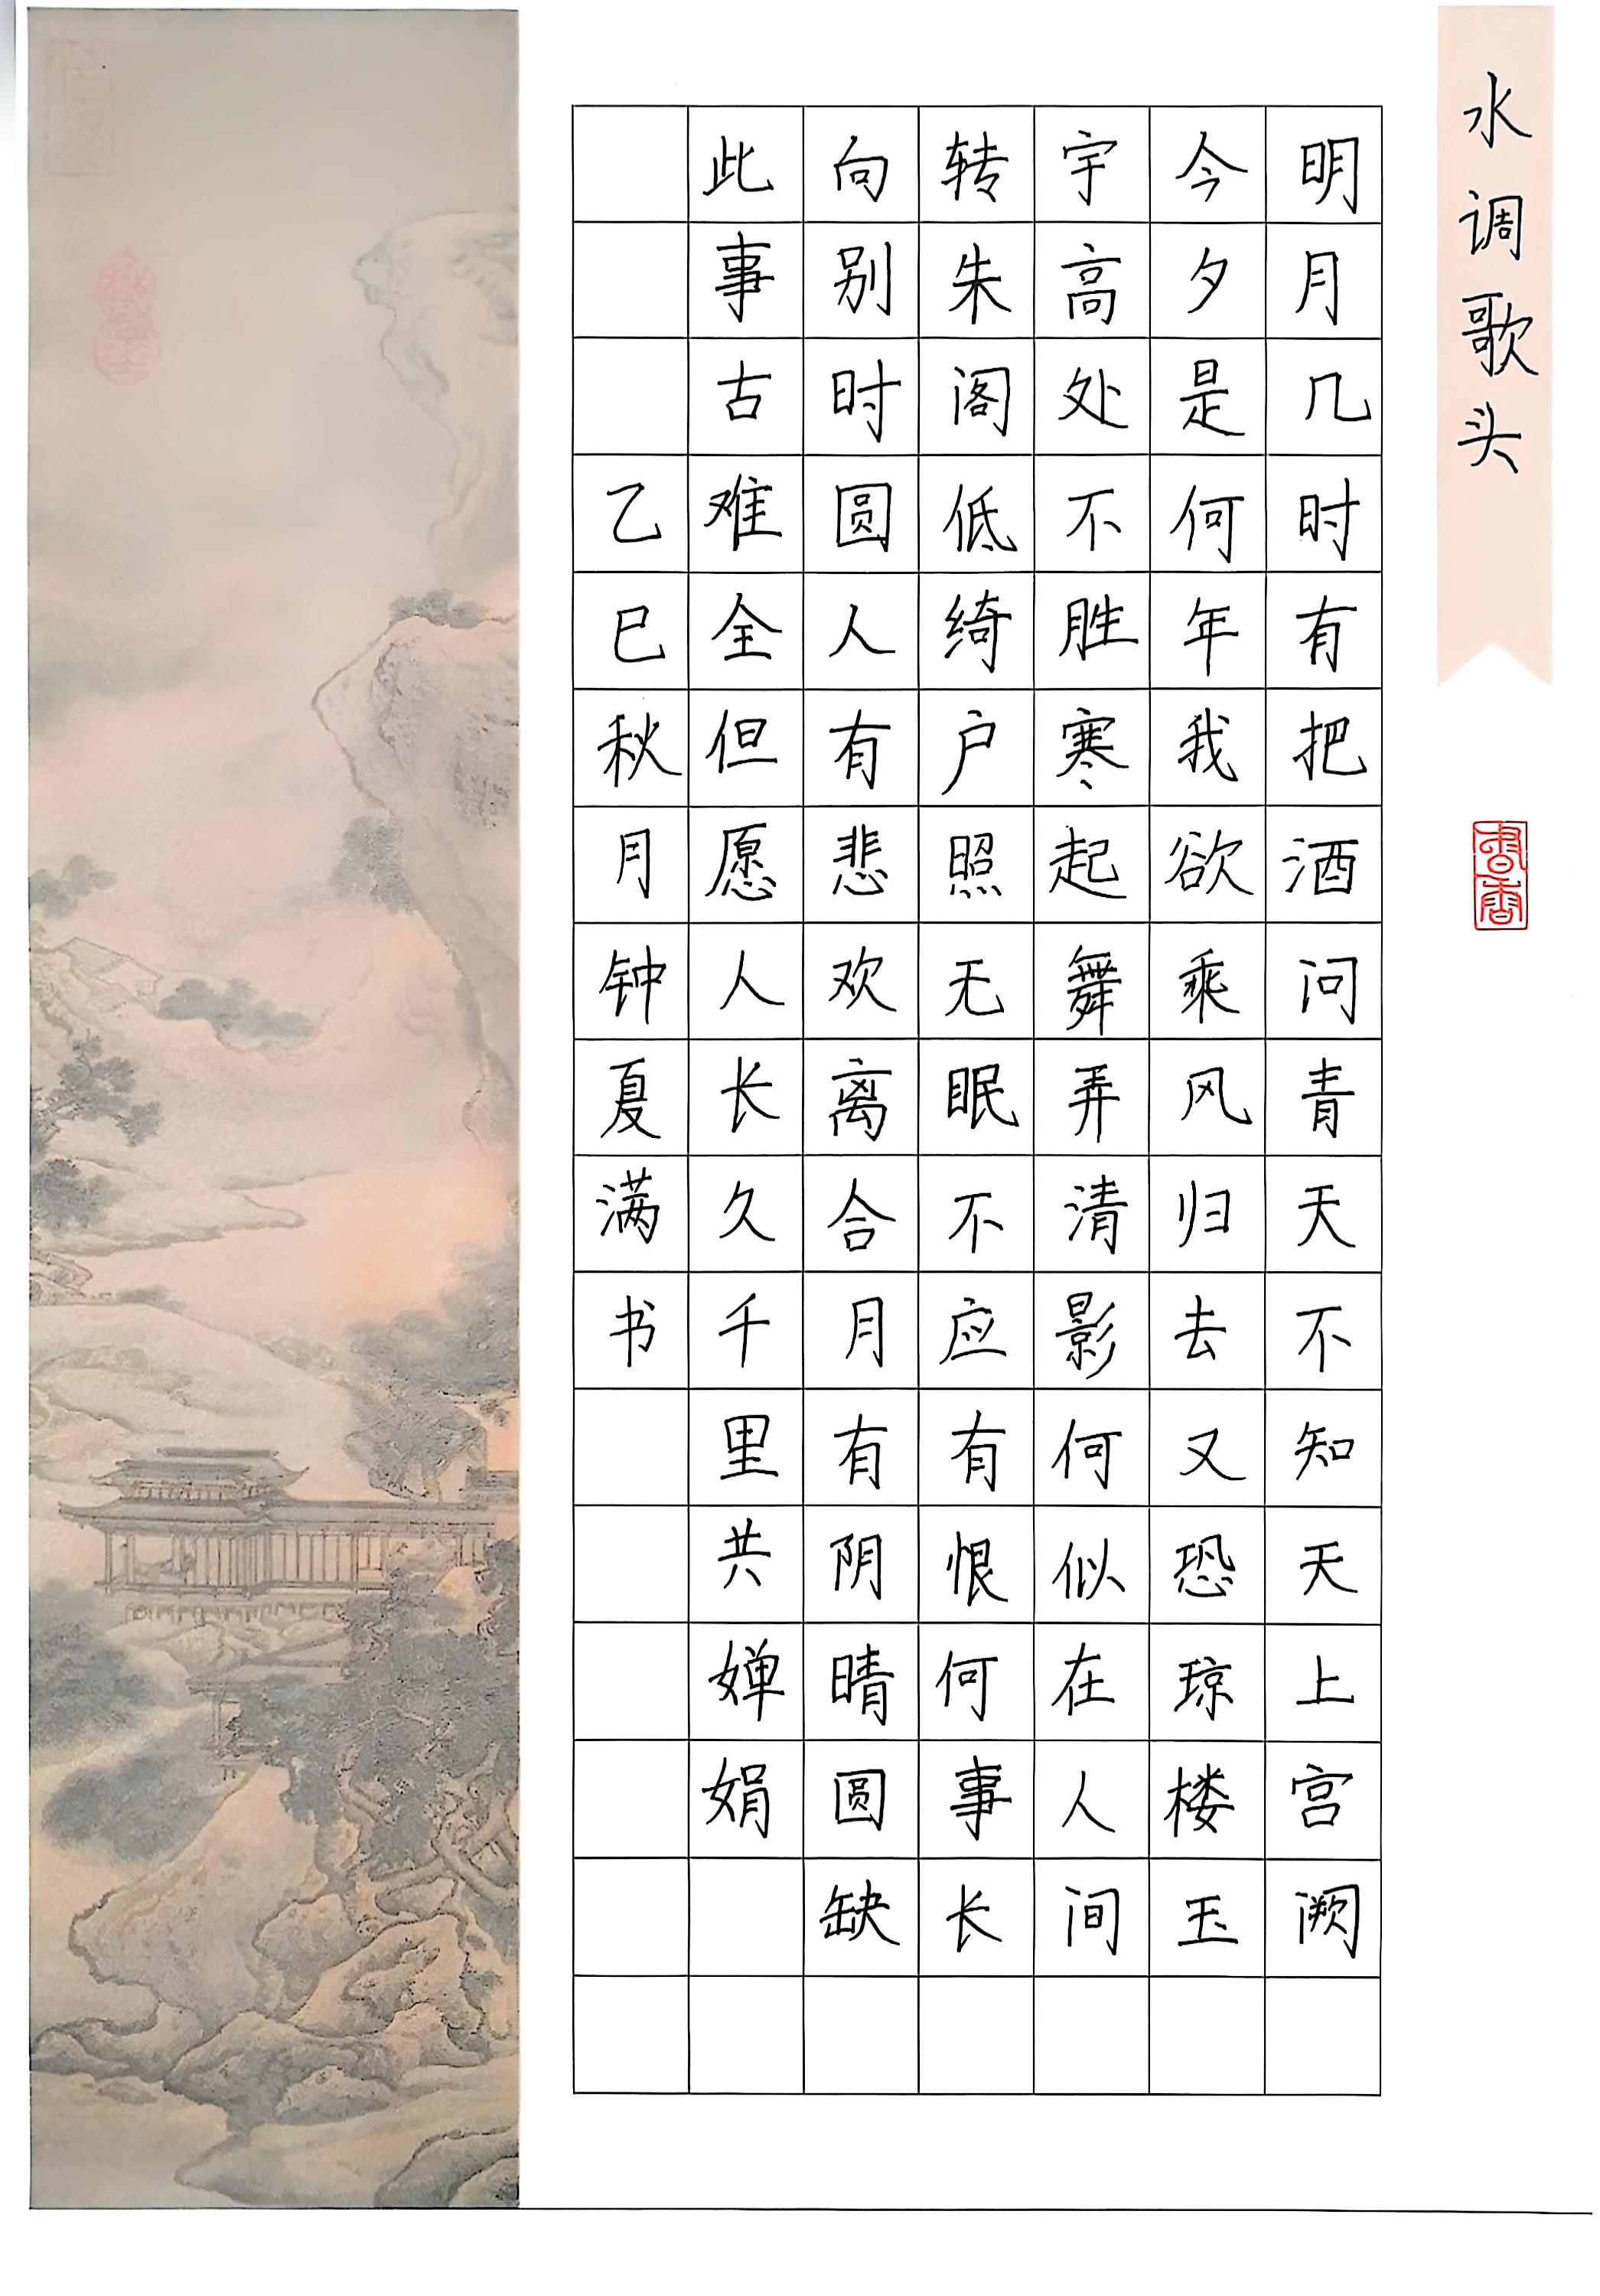 水调歌头
書香
明月几时有把酒问青天不知天上宫阙
今夕是何年我欲乘风归去又恐琼楼玉
宇高处不胜寒起舞弄清影何似在人间
转朱阁低绮户照无眠不应有恨何事长
向别时圆人有悲欢离合月有阴晴圆缺
此事古难全但愿人长久千里共婵娟
乙巳秋月钟夏满书